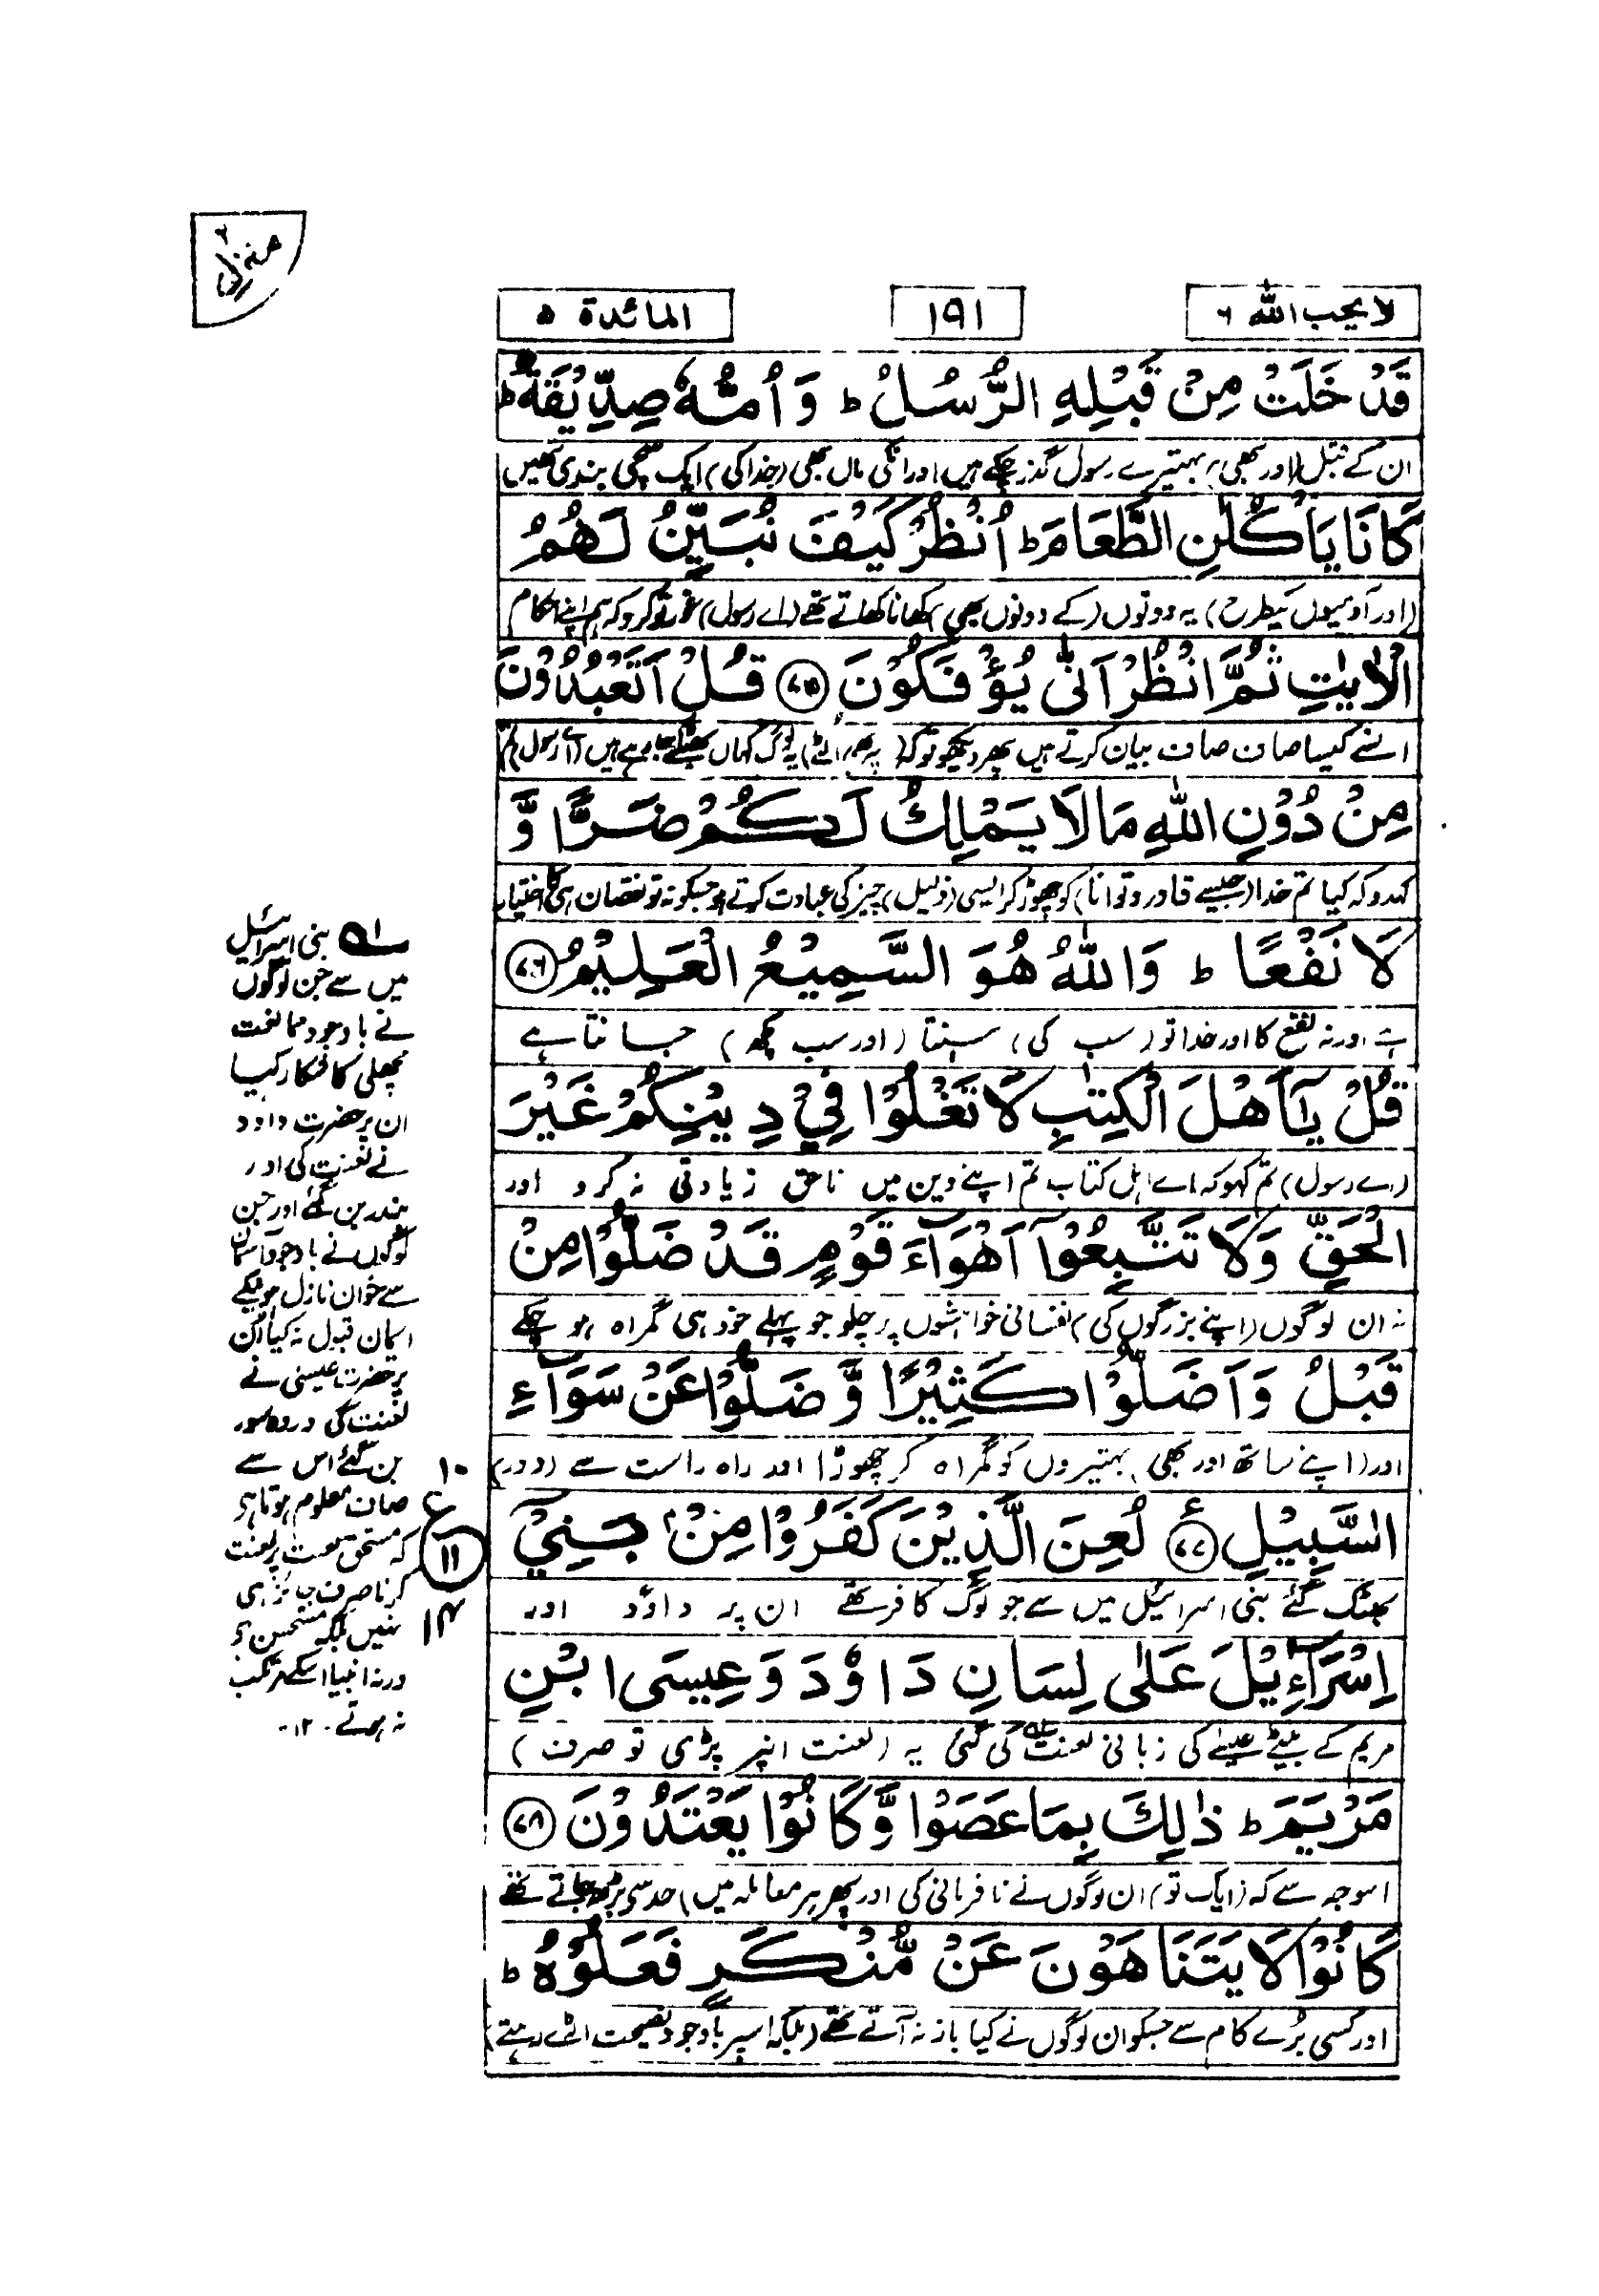 منزل ۲
لا یحب الله ۶
۱۹۱
المائدة ۵
قَدْ خَلَتْ مِنْ قَبْلِهِ الرُّسُلُ ط وَ اُمُّهٗ صِدِّيْقَةٌ ط
ان کے قبل (اور بھی) بہتیرے رسول گذر چکے ہیں اور انکی ماں بھی (خدا کی) ایک سچی بندی تھیں
كَانَا يَاْكُلٰنِ الطَّعَامَ ط اُنْظُرْ كَيْفَ نُبَيِّنُ لَهُمُ
(اور آدمیوں کیطرح) یہ دونوں (کے دونوں بھی) کھانا کھاتے تھے (اے رسول) غور تو کرو کہ ہم اپنے احکام
الْاٰيٰتِ ثُمَّ انْظُرْ اَنّٰى يُؤْفَكُوْنَ ۷۵ قُلْ اَتَعْبُدُوْنَ
انسے کیسا صاف صاف بیان کرتے ہیں پھر دیکھو تو کہ یہ لوگ کہاں بھٹکے جا رہے ہیں (اے رسول) تم
مِنْ دُوْنِ اللّٰهِ مَا لَا يَمْلِكُ لَكُمْ ضَرًّا وَّ
کہدو کہ کیا تم خدا (جیسے قادر و توانا) کو چھوڑ کر ایسی (ذلیل) چیز کی عبادت کرتے ہو جسکو نہ تو نقصان ہی کا اختیار
لَا نَفْعًا ط وَاللّٰهُ هُوَ السَّمِيْعُ الْعَلِيْمُ ۷۶
ہے اور نہ نفع کا اور خدا تو (سب کی) سنتا (اور سب کچھ) جانتا ہے
قُلْ يٰٓاَهْلَ الْكِتٰبِ لَا تَغْلُوْا فِيْ دِيْنِكُمْ غَيْرَ
(اے رسول) تم کہو کہ اے اہل کتاب تم اپنے دین میں ناحق زیادتی نہ کرو اور
الْحَقِّ وَلَا تَتَّبِعُوْٓا اَهْوَآءَ قَوْمٍ قَدْ ضَلُّوْا مِنْ
نہ ان لوگوں (اپنے بزرگوں کی) نفسانی خواہشوں پر چلو جو پہلے خود ہی گمراہ ہو چکے
قَبْلُ وَاَضَلُّوْا كَثِيْرًا وَّ ضَلُّوْا عَنْ سَوَآءِ
اور (اپنے ساتھ اور بھی) بہتیروں کو گمراہ کر چھوڑا اور راہ راست سے (دور)
السَّبِيْلِ ۷۷ ع لُعِنَ الَّذِيْنَ كَفَرُوْا مِنْۢ بَنِيْٓ
بھٹک گئے بنی اسرائیل میں سے جو لوگ کافر تھے ان پر داؤد اور
اِسْرَآءِيْلَ عَلٰى لِسَانِ دَاوٗدَ وَعِيسَى ابْنِ
مریم کے بیٹے عیسےٰ کی زبانی لعنت کی گئی یہ (لعنت انپر پڑی تو صرف)
مَرْيَمَ ط ذٰلِكَ بِمَا عَصَوْا وَّ كَانُوْا يَعْتَدُوْنَ ۷۸
اسوجہ سے کہ (ایک تو) ان لوگوں نے نافرمانی کی اور پھر (ہر معاملہ میں) حد سے بڑھ جاتے تھے
كَانُوْا لَا يَتَنَاهَوْنَ عَنْ مُّنْكَرٍ فَعَلُوْهُ ط
اور کسی بُرے کام سے جسکو ان لوگوں نے کیا باز نہ آتے تھے (بلکہ اسپر باوجود نصیحت اڑے رہتے)
۱ بنی اسرائیل
میں سے جن لوگوں
نے باوجود ممانعت
مچھلی کا شکار کیا
ان پر حضرت داود
نے لعنت کی اور
بندر بن گئے اور جن
لوگوں نے باوجود آسمان
سے خوان نازل ہو چکے
ایمان قبول نہ کیا ان
پر حضرت عیسیٰ نے
لعنت کی اور وہ سور
بن گئے اس سے
صاف معلوم ہوتا ہی
کہ مستحق لعنت پر لعنت
کرنا صرف جائز ہی
نہیں بلکہ مستحسن ہے
ورنہ انبیا اسکے مرتکب
نہ ہوتے ۔ ۱۲ ۔
۱۰
ع
۱۱
۱۴